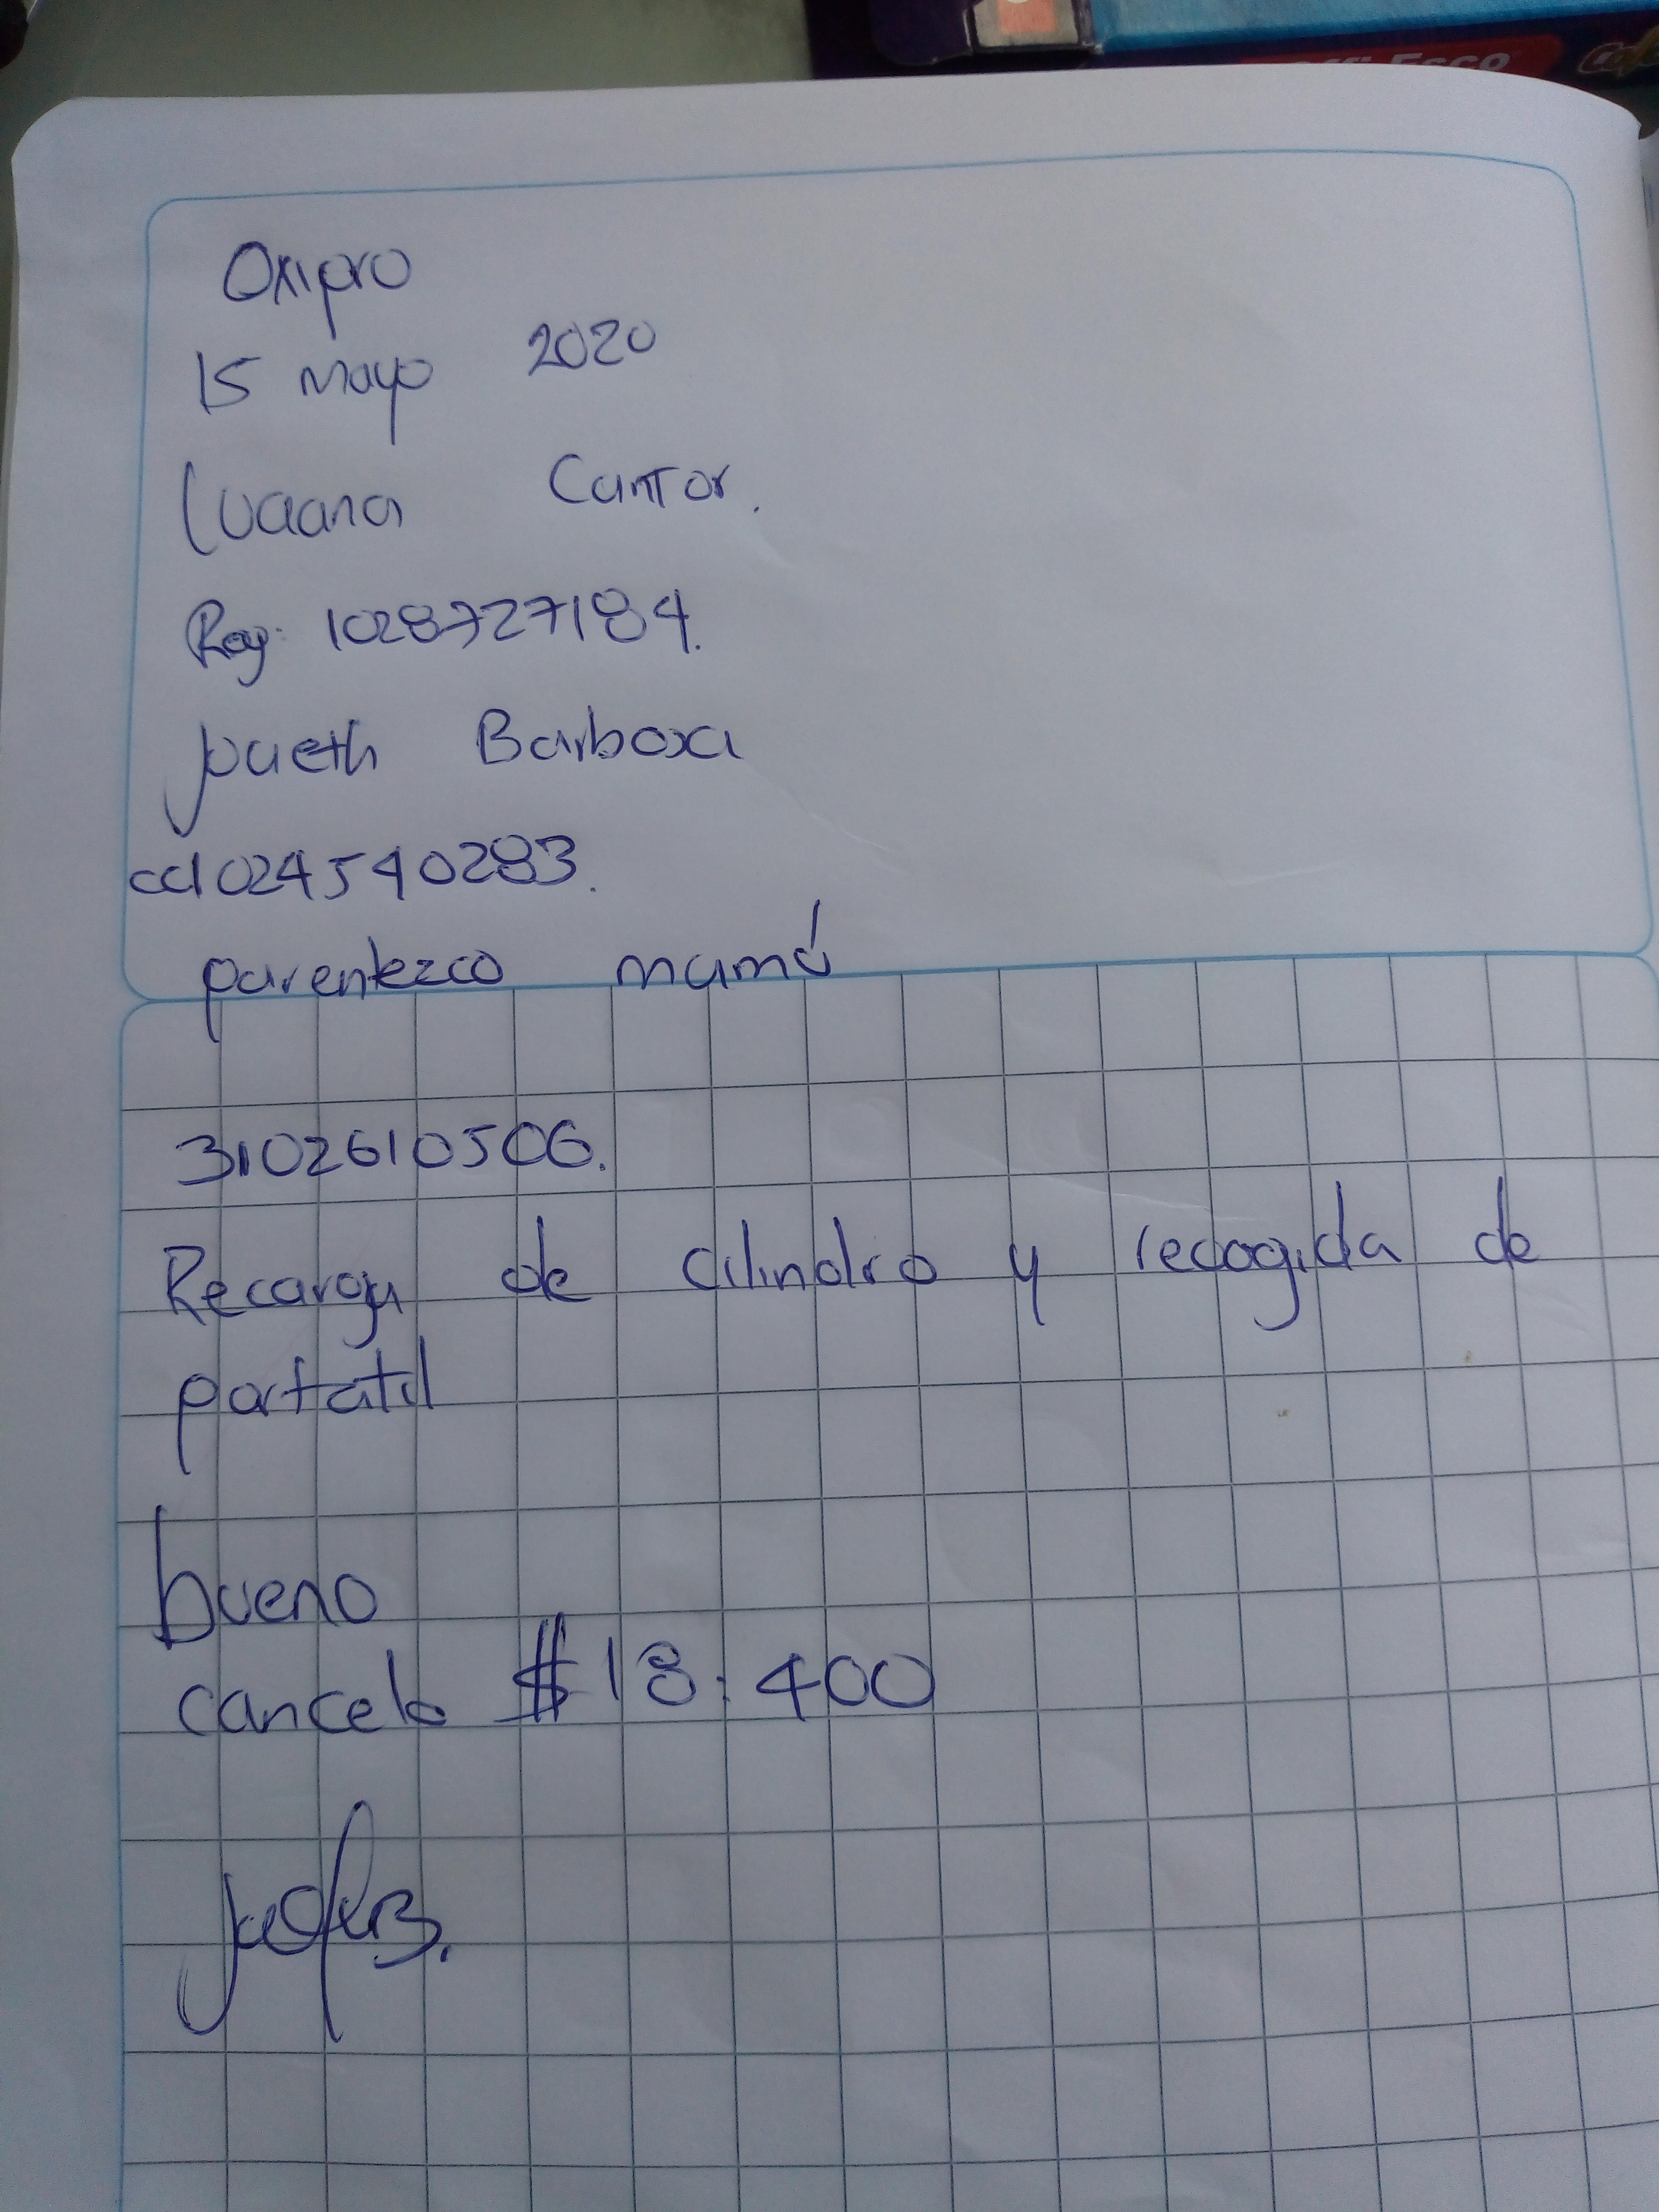 Oxipro
15 mayo 2020
Luciana Cantor.
Reg: 1028727184.
Barboxa
cc1024540283.
parentezco mamá
3102610506.
Recarga de cilindro y recogida de
portatil
bueno
cancelo $18.400